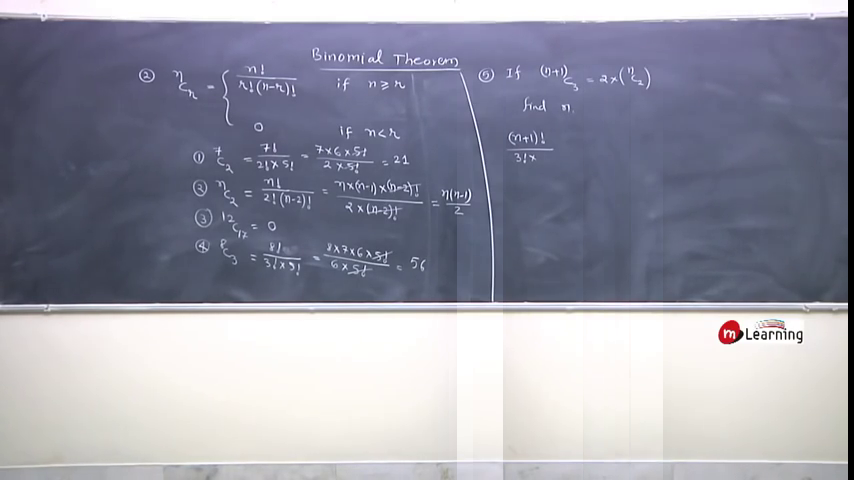 Binomial Theorem
② ⁿCᵣ = { n! / r!(n-r)! if n ≥ r
0 if n < r
① ⁷C₂ = 7! / 2! × 5! = 7×6×5! / 2×5! = 21
② ⁿC₂ = n! / 2!(n-2)! = n×(n-1)×(n-2)! / 2×(n-2)! = n(n-1) / 2
③ ¹²C₁₇ = 0
④ ⁸C₃ = 8! / 3!×5! = 8×7×6×5! / 6×5! = 56
⑤ If ⁽ⁿ⁺¹⁾C₃ = 2×(ⁿC₂)
find n.
(n+1)! / 3!×
m Learning